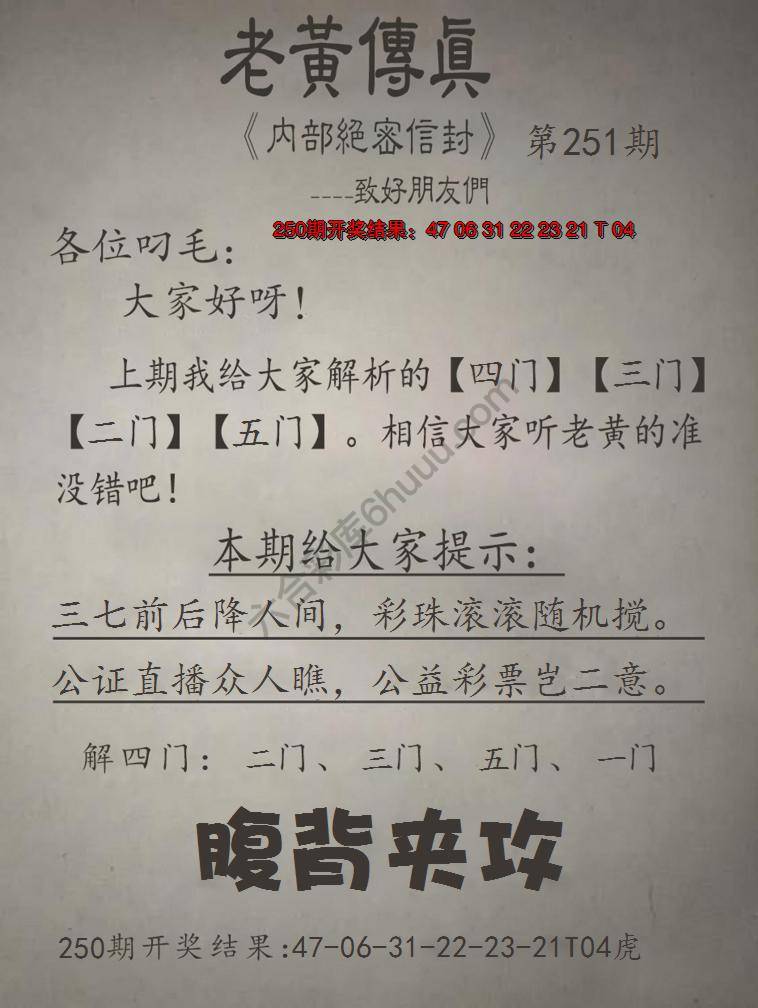 老黃傳眞
《内部絕密信封》 第251期
----致好朋友們
250期开奖结果：47 06 31 22 23 21 T 04
各位叼毛：
大家好呀！
上期我给大家解析的【四门】【三门】
【二门】【五门】。相信大家听老黄的准
没错吧！
本期给大家提示：
三七前后降人间，彩珠滚滚随机搅。
公证直播众人瞧，公益彩票岂二意。
解四门：二门、三门、五门、一门
腹背夹攻
250期开奖结果:47-06-31-22-23-21T04虎
六合彩库6huuu.com